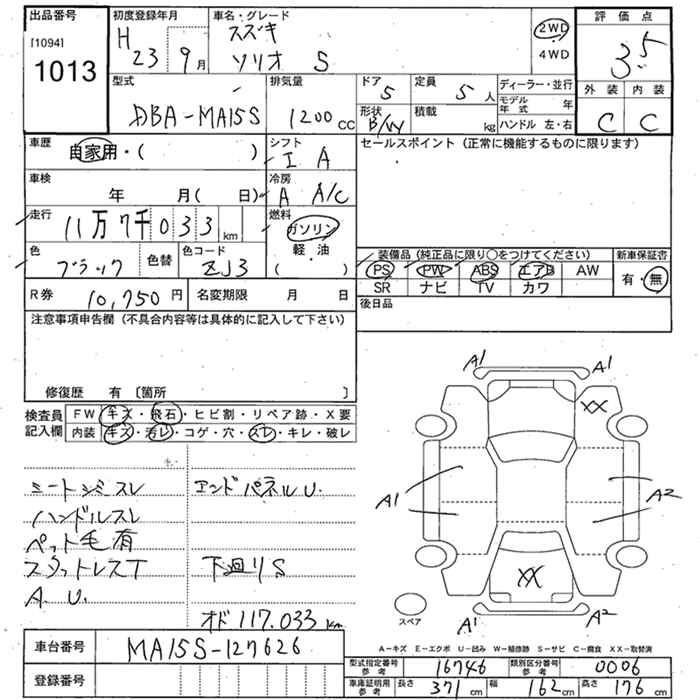 出品番号
[1094]
1013
初度登録年月
H 23 9月
車名・グレード
スズキ
ソリオ S
2WD
4WD
評価点
3.5
外装 内装
C C
型式
DBA-MA15S
排気量
1200cc
ドア
5
定員
5人
形状
B/W
積載
kg
ディーラー・並行
モデル年式 年
ハンドル 左・右
車歴
自家用・( )
シフト
I A
セールスポイント(正常に機能するものに限ります)
車検
年 月(日)
冷房
A A/C
走行
11万7千033km
燃料
ガソリン
軽・油
( )
色
ブラック
色替
色コード
ZJ3
装備品(純正品に限り○をつけてください)
PS PW ABS エアB AW
SR ナビ TV カワ
新車保証書
有・無
R券 10,750円
名変期限 月 日
後日品
注意事項申告欄(不具合内容等は具体的に記入して下さい)
修復歴 有〔箇所 〕
検査員記入欄
FW キズ・飛石・ヒビ割・リペア跡・X要
内装 キズ・汚レ・コゲ・穴・スレ・キレ・破レ
シートシミスレ
エンドパネルU.
ハンドルスレ
ペット毛有
スタットレスT
下廻りS
A.U.
オド117.033km
A1 A1
XX
A1 A2
XX
A1 A2
スペア
A－キズ E－エクボ U－凹み W－補修跡 S－サビ C－腐食 XX－取替済
車台番号
MA15S-127626
登録番号
型式指定番号 参考
16746
類別区分番号 参考
0006
車庫証明用 参考
長さ 371cm 幅 162cm 高さ 176cm